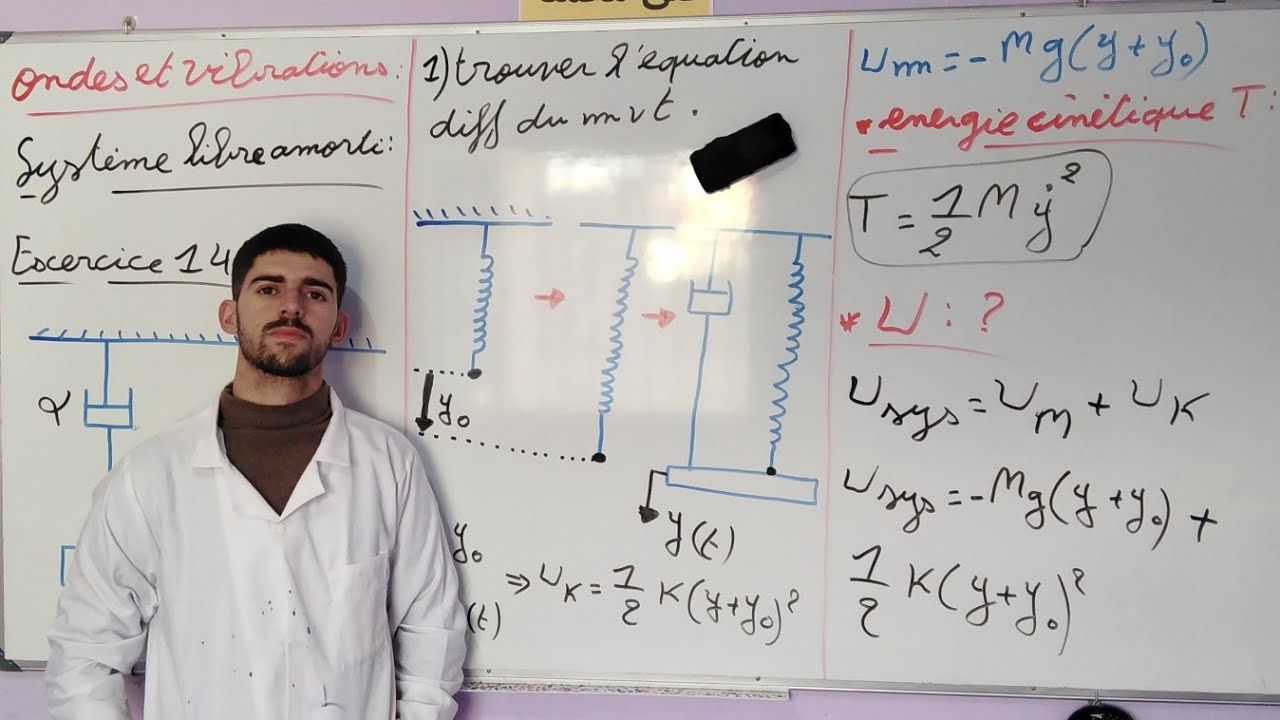 Ondes et vibrations:
Système libre amorti:
Exercice 14
α
1) trouver l'équation
diff du mvt.
y₀
y(t)
y₀
(t)
⇒ U_K = 1/2 K(y+y₀)²
U_m = -Mg(y+y₀)
* energie cinétique T:
T = 1/2 M ẏ²
* U : ?
U_sys = U_M + U_K
U_sys = -Mg(y+y₀) +
1/2 K(y+y₀)²